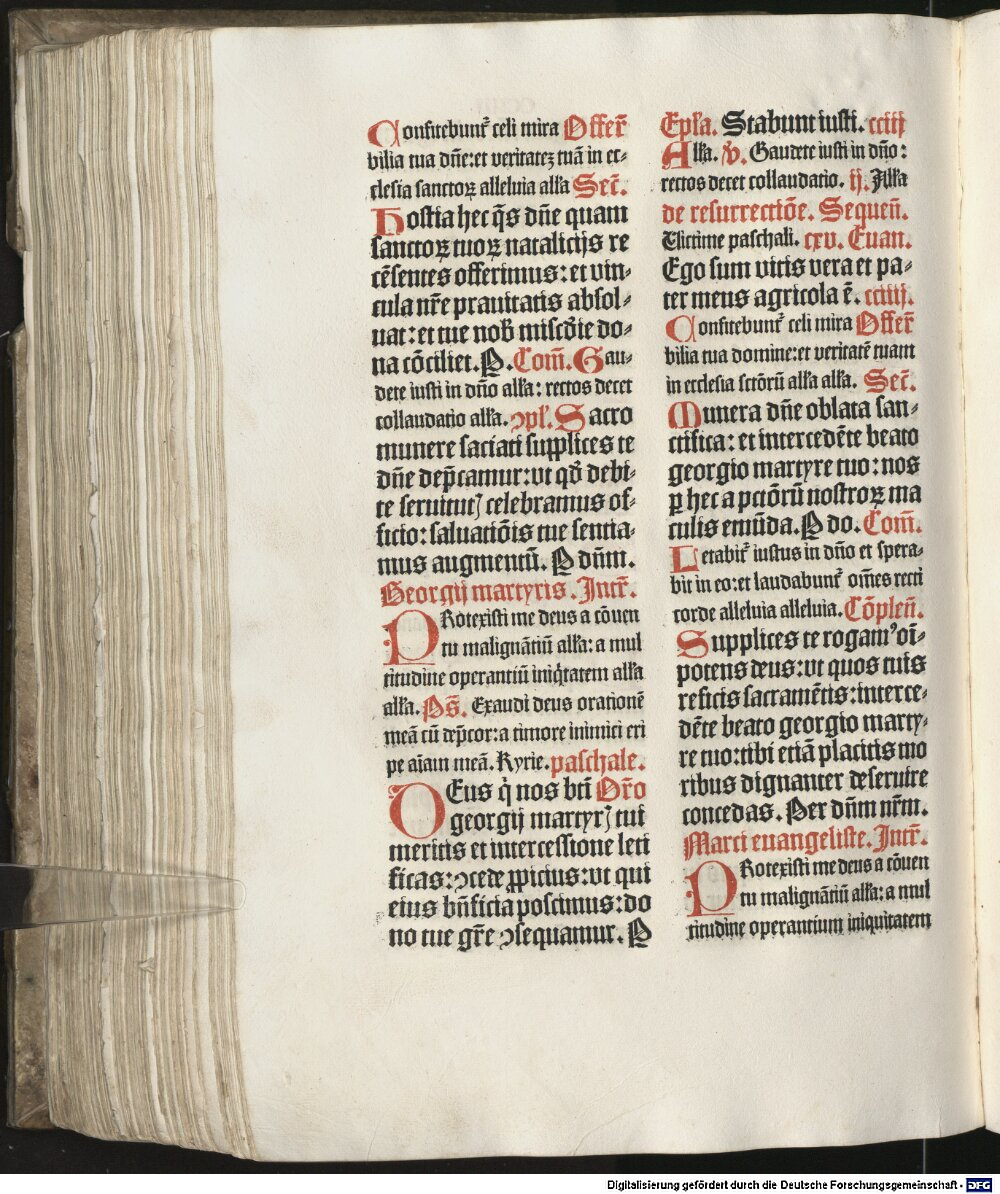 Confitebunt᷑ celi mira Offer̄
bilia tua dn̄e:et veritateꝫ tuā in ec⸗
clesia sanctoꝝ alleluia all'a Sec̄.
Hostia hec q̄s dn̄e quam
sanctoꝝ tuoꝝ natalicijs re
cēsentes offerimus: et vin⸗
cula nr̄e prauitatis absol⸗
uat: et tue nob̄ mis̄cdie do⸗
na cōciliet. P. Com̄. Gau⸗
dete iusti in dn̄o all'a: rectos decet
collaudatio all'a. ꝯpl'. Sacro
munere saciati supplices te
dn̄e dep̄camur: vt qd̄ debi⸗
te seruitutꝭ celebramus of⸗
ficio: saluatiōis tue sentia⸗
mus augmentū. P dn̄m.
Georgij martyris. Intr̄.
PRotexisti me deus a cōuen
tu malignātiū all'a: a mul
titudine operantiū iniq̇tatem all'a
all'a. Ps̄. Exaudi deus orationē
meā cū dep̄cor: a timore inimici eri
pe aīam meā. Kyrie. paschale.
DEus q̇ nos bt̄i Or̄o
georgij martyrꝭ tui
meritis et intercessione leti
ficas: ꝯcede ꝓpicius: vt qui
eius bn̄ficia poscimus: do
no tue gr̄e ꝯsequamur. P
Ep̄la. Stabunt iusti. cciij
All'a. v̄. Gaudete iusti in dn̄o:
rectos decet collaudatio. ij. All'a
de resurrectiōe. Sequen̄.
Victime paschali. cxv. Euan.
Ego sum vitis vera et pa⸗
ter meus agricola ē. cciiij.
Confitebunt᷑ celi mira Offer̄
bilia tua domine: et veritatē tuam
in ecclesia sctōrū all'a all'a. Sec̄.
Munera dn̄e oblata san⸗
ctifica: et intercedēte beato
georgio martyre tuo: nos
ꝑ hec a pctōrū nostroꝝ ma
culis emūda. P do. Com̄.
Letabit᷑ iustus in dn̄o et spera⸗
bit in eo: et laudabunt᷑ om̄es recti
corde alleluia alleluia. Cōplen̄.
Supplices te rogamꝰ oī⸗
potens deus: vt quos tuis
reficis sacramētis: interce⸗
dēte beato georgio marty⸗
re tuo: tibi etiā placitis mo
ribus dignanter deseruire
concedas. Per dn̄m nr̄m.
Marci euangeliste. Intr̄.
PRotexisti me deus a cōuen
tu malignātiū all'a: a mul
titudine operantium iniquitatem
Digitalisierung gefördert durch die Deutsche Forschungsgemeinschaft - DFG